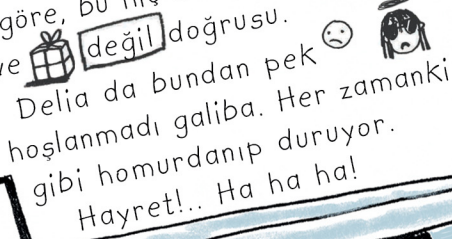 göre, bu
ve değil doğrusu.
Delia da bundan pek
hoşlanmadı galiba. Her zamanki
gibi homurdanıp duruyor.
Hayret!.. Ha ha ha!